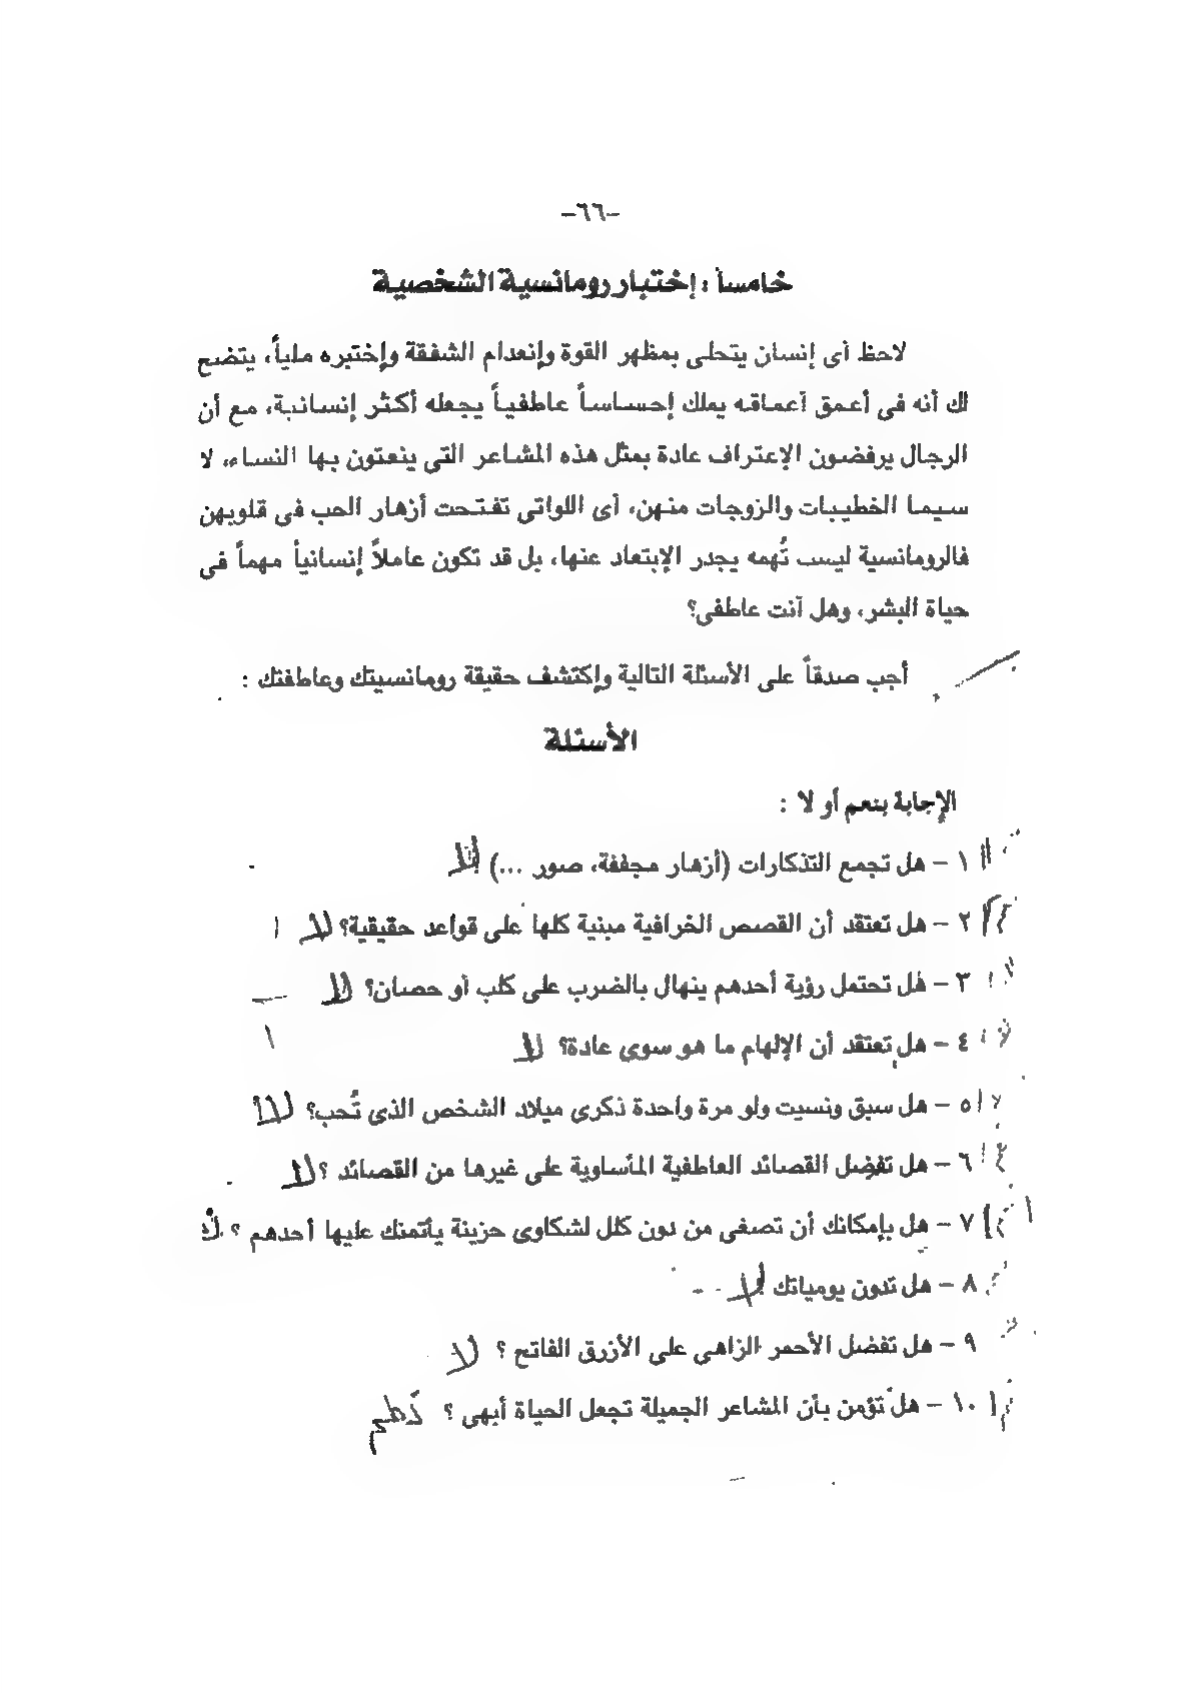 -٦٦-
خامساً : إختبار رومانسية الشخصية
لاحظ أى إنسان يتحلى بمظهر القوة وإنعدام الشفقة وإختبره ملياً، يتضح
لك أنه فى أعمق أعماقه يملك إحساساً عاطفياً يجعله أكثر إنسانية، مع أن
الرجال يرفضون الإعتراف عادة بمثل هذه المشاعر التى ينعتون بها النساء، لا
سيما الخطيبات والزوجات منهن، أى اللواتى تفتحت أزهار الحب فى قلوبهن
فالرومانسية ليست تُهمه يجدر الإبتعاد عنها، بل قد تكون عاملاً إنسانياً مهماً فى
حياة البشر، وهل أنت عاطفى؟
أجب صدقاً على الأسئلة التالية وإكتشف حقيقة رومانسيتك وعاطفتك :
الأسئلة
الإجابة بنعم أو لا :
١ - هل تجمع التذكارات (أزهار مجففة، صور ...) لا
٢ - هل تعتقد أن القصص الخرافية مبنية كلها على قواعد حقيقية؟ لا
٣ - هل تحتمل رؤية أحدهم ينهال بالضرب على كلب أو حصان؟ لا
٤ - هل تعتقد أن الإلهام ما هو سوى عادة؟ لا
٥ - هل سبق ونسيت ولو مرة واحدة ذكرى ميلاد الشخص الذى تُحب؟ لا
٦ - هل تفضل القصائد العاطفية المأساوية على غيرها من القصائد ؟ لا
٧ - هل بإمكانك أن تصغى من دون كلل لشكاوى حزينة يأتمنك عليها أحدهم ؟
٨ - هل تدون يومياتك ؟ لا
٩ - هل تفضل الأحمر الزاهى على الأزرق الفاتح ؟ لا
١٠ - هل تؤمن بأن المشاعر الجميلة تجعل الحياة أبهى ؟ نعم